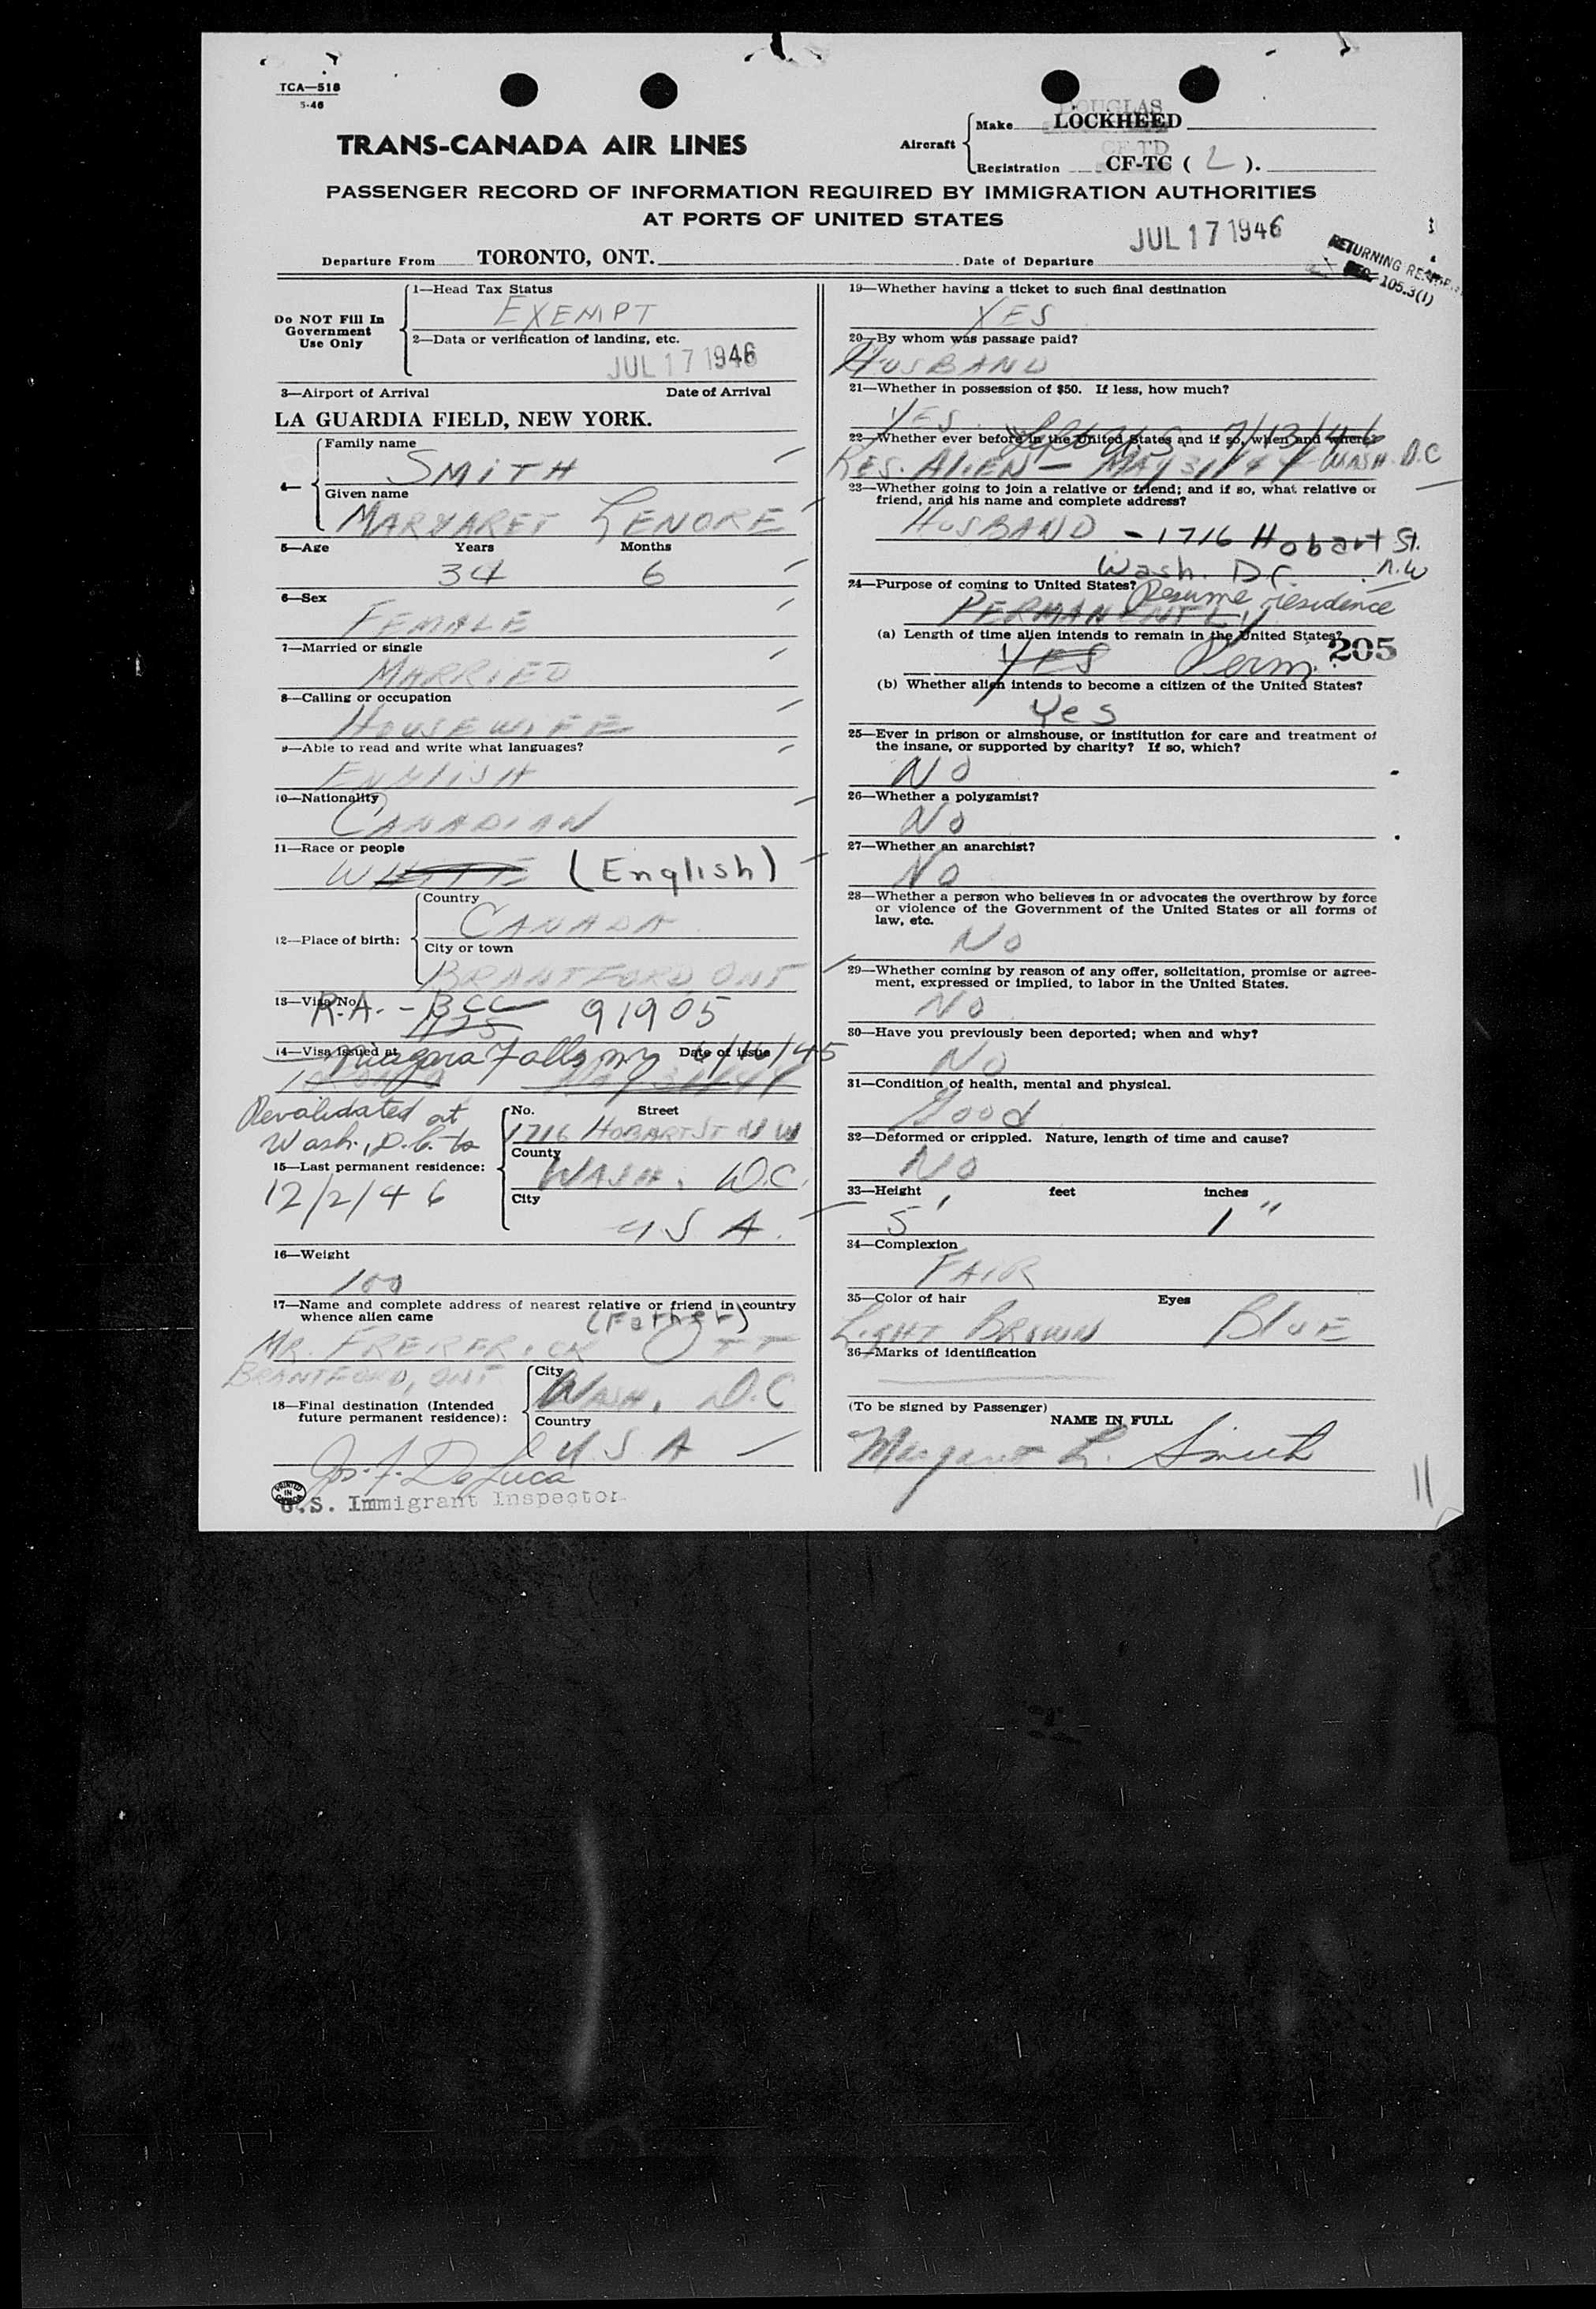 TCA—518
5-46
DOUGLAS
Aircraft
Make LOCKHEED
TRANS-CANADA AIR LINES
CF-TD
Registration CF-TC ( L ).
PASSENGER RECORD OF INFORMATION REQUIRED BY IMMIGRATION AUTHORITIES
AT PORTS OF UNITED STATES
JUL 17 1946
Departure From TORONTO, ONT. Date of Departure
RETURNING
105.3(1)
Do NOT Fill In
Government
Use Only
1—Head Tax Status
EXEMPT
2—Data or verification of landing, etc.
JUL 17 1946
3—Airport of Arrival Date of Arrival
LA GUARDIA FIELD, NEW YORK.
4—
Family name
SMITH
Given name
MARGARET LENORE
5—Age Years Months
34 6
6—Sex
FEMALE
7—Married or single
MARRIED
8—Calling or occupation
HOUSEWIFE
9—Able to read and write what languages?
ENGLISH
10—Nationality
CANADIAN
11—Race or people
WHITE (English)
12—Place of birth:
Country
CANADA
City or town
BRANTFORD, ONT
13—Visa No.
R.A. - BCC 91905
14—Visa issued at Date of issue
Niagara Falls NY 6/16/45
Revalidated at
Wash., D.C. to
12/2/46
15—Last permanent residence:
No. Street
1716 HOBART ST N W
County
WASH. D.C.
City
U S A.
16—Weight
100
17—Name and complete address of nearest relative or friend in country
whence alien came
(Father)
MR. FREDERICK OTT
BRANTFORD, ONT
18—Final destination (Intended
future permanent residence):
City
WASH. D.C
Country
U.S A
Jos. F. DeLuca
PRINTED IN CANADA
U.S. Immigrant Inspector
19—Whether having a ticket to such final destination
YES
20—By whom was passage paid?
HUSBAND
21—Whether in possession of $50. If less, how much?
YES
22—Whether ever before in the United States and if so, when and where?
Left U.S. 7/13/46
RES. ALIEN — MAY 31/44 WASH. D.C
23—Whether going to join a relative or friend; and if so, what relative or
friend, and his name and complete address?
HUSBAND - 1716 Hobart St.
Wash. DC. N.W
24—Purpose of coming to United States?
PERMANENTLY Resume residence
(a) Length of time alien intends to remain in the United States?
YES Perm. 205
(b) Whether alien intends to become a citizen of the United States?
Yes
25—Ever in prison or almshouse, or institution for care and treatment of
the insane, or supported by charity? If so, which?
NO
26—Whether a polygamist?
No
27—Whether an anarchist?
No
28—Whether a person who believes in or advocates the overthrow by force
or violence of the Government of the United States or all forms of
law, etc.
No
29—Whether coming by reason of any offer, solicitation, promise or agree-
ment, expressed or implied, to labor in the United States.
No
30—Have you previously been deported; when and why?
No
31—Condition of health, mental and physical.
Good
32—Deformed or crippled. Nature, length of time and cause?
NO
33—Height feet inches
5' 1"
34—Complexion
FAIR
35—Color of hair Eyes
LIGHT BROWN BLUE
36—Marks of identification
(To be signed by Passenger)
NAME IN FULL
Margaret L. Smith
11